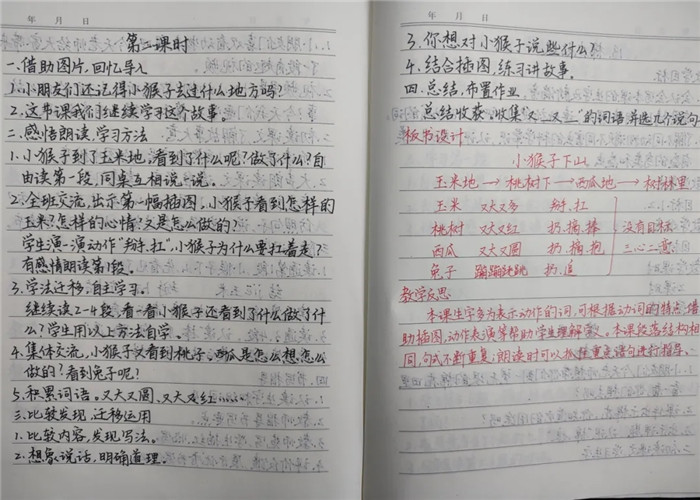 年 月 日
第二课时
一、借助图片,回忆导入
1.小朋友们还记得小猴子去过什么地方吗?
2.这节课我们继续学习这个故事。
二、感悟朗读,学习方法
1.小猴子到了玉米地,看到了什么呢?做了什么?自
由读第一段,同桌互相说一说。
2.全班交流,出示第一幅插图,小猴子看到怎样的
玉米?怎样的心情?又是怎么做的?
学生演一演动作"掰、扛",小猴子为什么要扛着走?
有感情朗读第1段。
3.学法迁移,自主学习。
继续读2-4段,看一看小猴子还看到了什么做了什
么?学生用以上方法自学。
4.集体交流,小猴子又看到桃子、西瓜是怎么想怎么
做的?看到兔子呢?
5.积累词语。又大又圆,又大又红……
三、比较发现,迁移运用
1.比较内容,发现写法。
2.想象说话,明确道理。
年 月 日
3.你想对小猴子说些什么?
4.结合插图,练习讲故事。
四.总结,布置作业
总结收获,收集"又_又_"的词语并选几个说句
板书设计
小猴子下山
玉米地→桃树下→西瓜地→树林里
玉米 又大又多 掰、扛
桃树 又大又红 扔、摘、捧 没有目标
西瓜 又大又圆 扔、摘、抱 三心二意
兔子 蹦蹦跳跳 扔、追
教学反思
本课生字多为表示动作的词,可根据动词的特点,借
助插图,动作表演等帮助学生理解字义。本课段落结构相
同,句式不断重复,朗读时可以抓住重点语句进行指导。